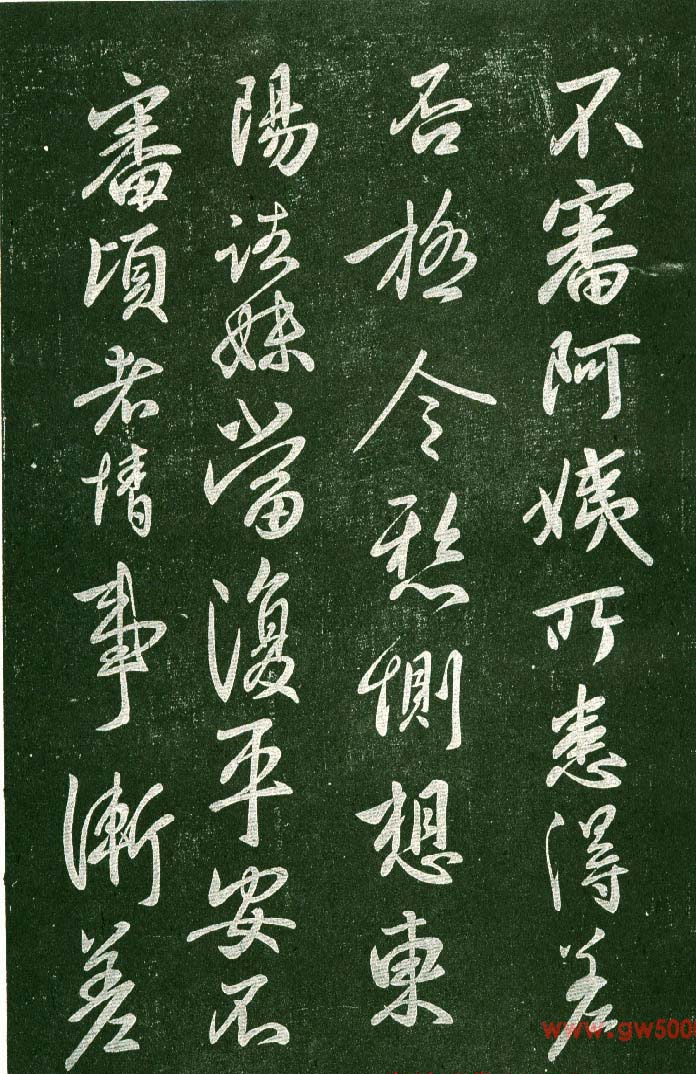 不審阿姨所患得差
否極令懸惻想東
陽諸妹當復平安不
審頃者情事漸差
www.gw500